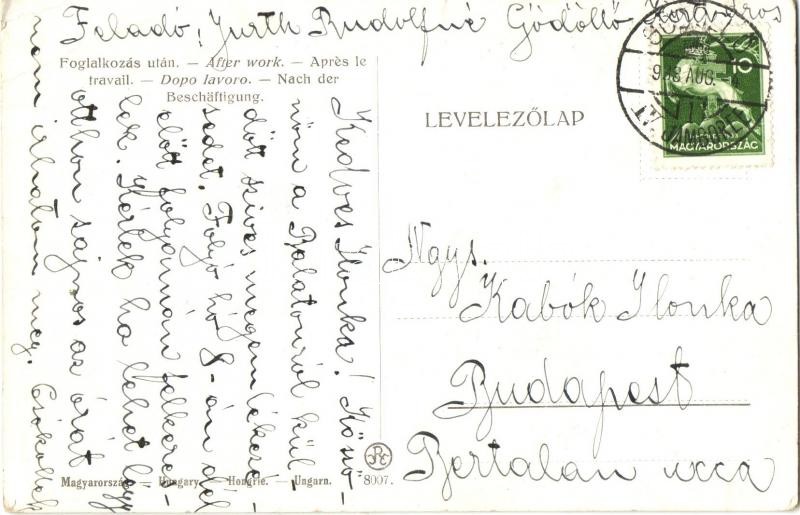 Feladó: Jurth Rudolfné Gödöllő
Foglalkozás után. — After work. — Après le
travail. — Dopo lavoro. — Nach der
Beschäftigung.
LEVELEZŐLAP
10
MAGYARORSZÁG
Kedves Ilonka! Köszö-
nöm a Balatonról kül-
dött szives megemlékezé-
sedet. Folyó hó 8-án dél
előtt folyamán felkere-
lek. Kérlek ha lehet légy
otthon sajnos az órát
nem irhatom meg. Csókollak
Ngys.
Kabók Ilonka
Budapest
Bertalan ucca
Magyarország. — Hungary. — Hongrie. — Ungarn.
8007.